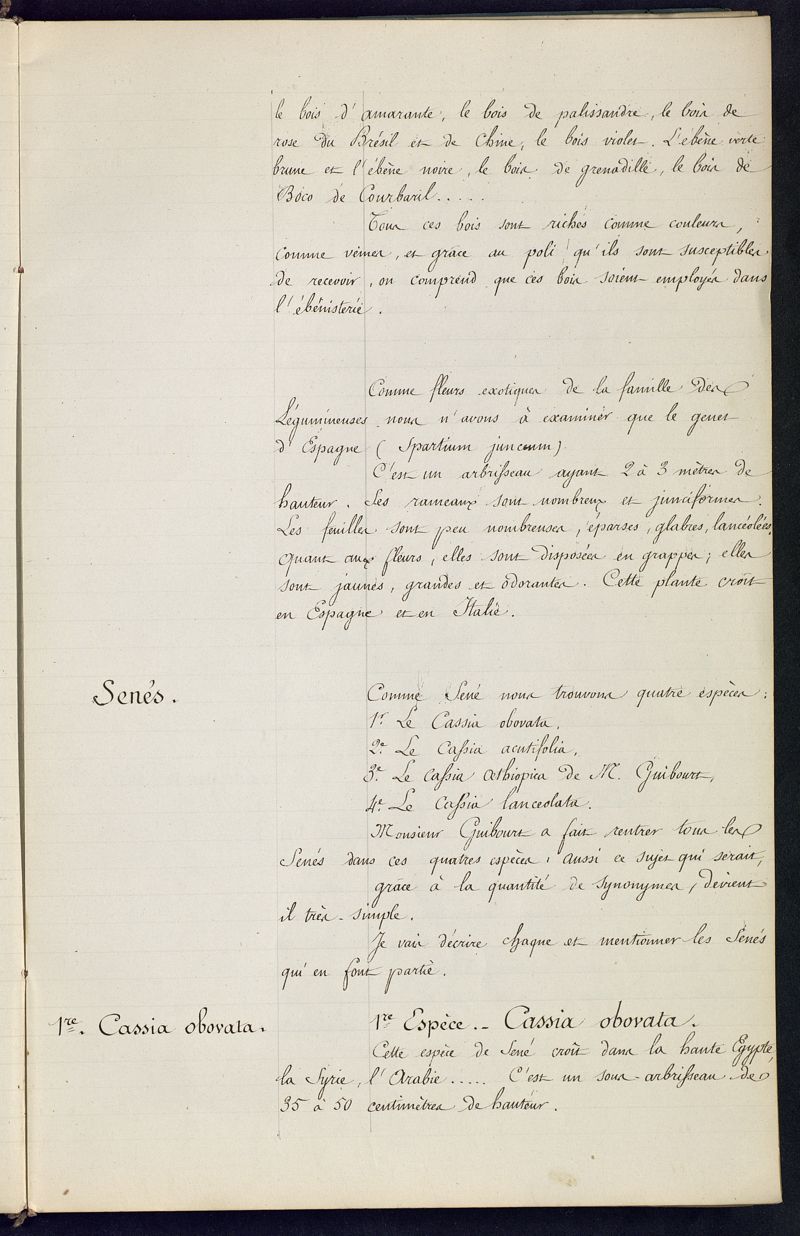 le bois d'amarante, le bois de palissandre, le bois de
rose du Brésil et de Chine, le bois violet. L'ébène verte
brune et l'ébène noire, le bois de grenadille, le bois de
Boco de Courbaril.....
Tous ces bois sont riches comme couleurs,
comme veines, et grâce au poli qu'ils sont susceptibles
de recevoir, on comprend que ces bois soient employés dans
l'ébénisterie.
Comme fleurs exotiques de la famille des
Légumineuses nous n'avons à examiner que le genet
d'Espagne (Spartium junceum)
C'est un arbrisseau ayant 2 à 3 mètres de
hauteur. Ses rameaux sont nombreux et junciformes.
Les feuilles sont peu nombreuses, éparses, glabres, lancéolées.
Quant aux fleurs, elles sont disposées en grappes; elles
sont jaunes, grandes et odorantes. Cette plante croît
en Espagne et en Italie.
Senés.
Comme Sené nous trouvons quatre espèces:
1r Le Cassia obovata.
2e Le Cassia acutifolia.
3e Le Cassia æthiopica de M. Guibourt,
4e Le Cassia lanceolata.
Monsieur Guibourt a fait rentrer tous les
Senés dans ces quatres espèces; aussi ce sujet qui serait,
grâce à la quantité de synonymes, devient
il très-simple.
Je vais décrire chaque et mentionner les Senés
qui en font partie.
1re. Cassia obovata.
1re Espèce.- Cassia obovata.
Cette espèce de Sené croît dans la haute Egypte,
la Syrie, l'Arabie..... C'est un sous-arbrisseau de
35 à 50 centimètres de hauteur.